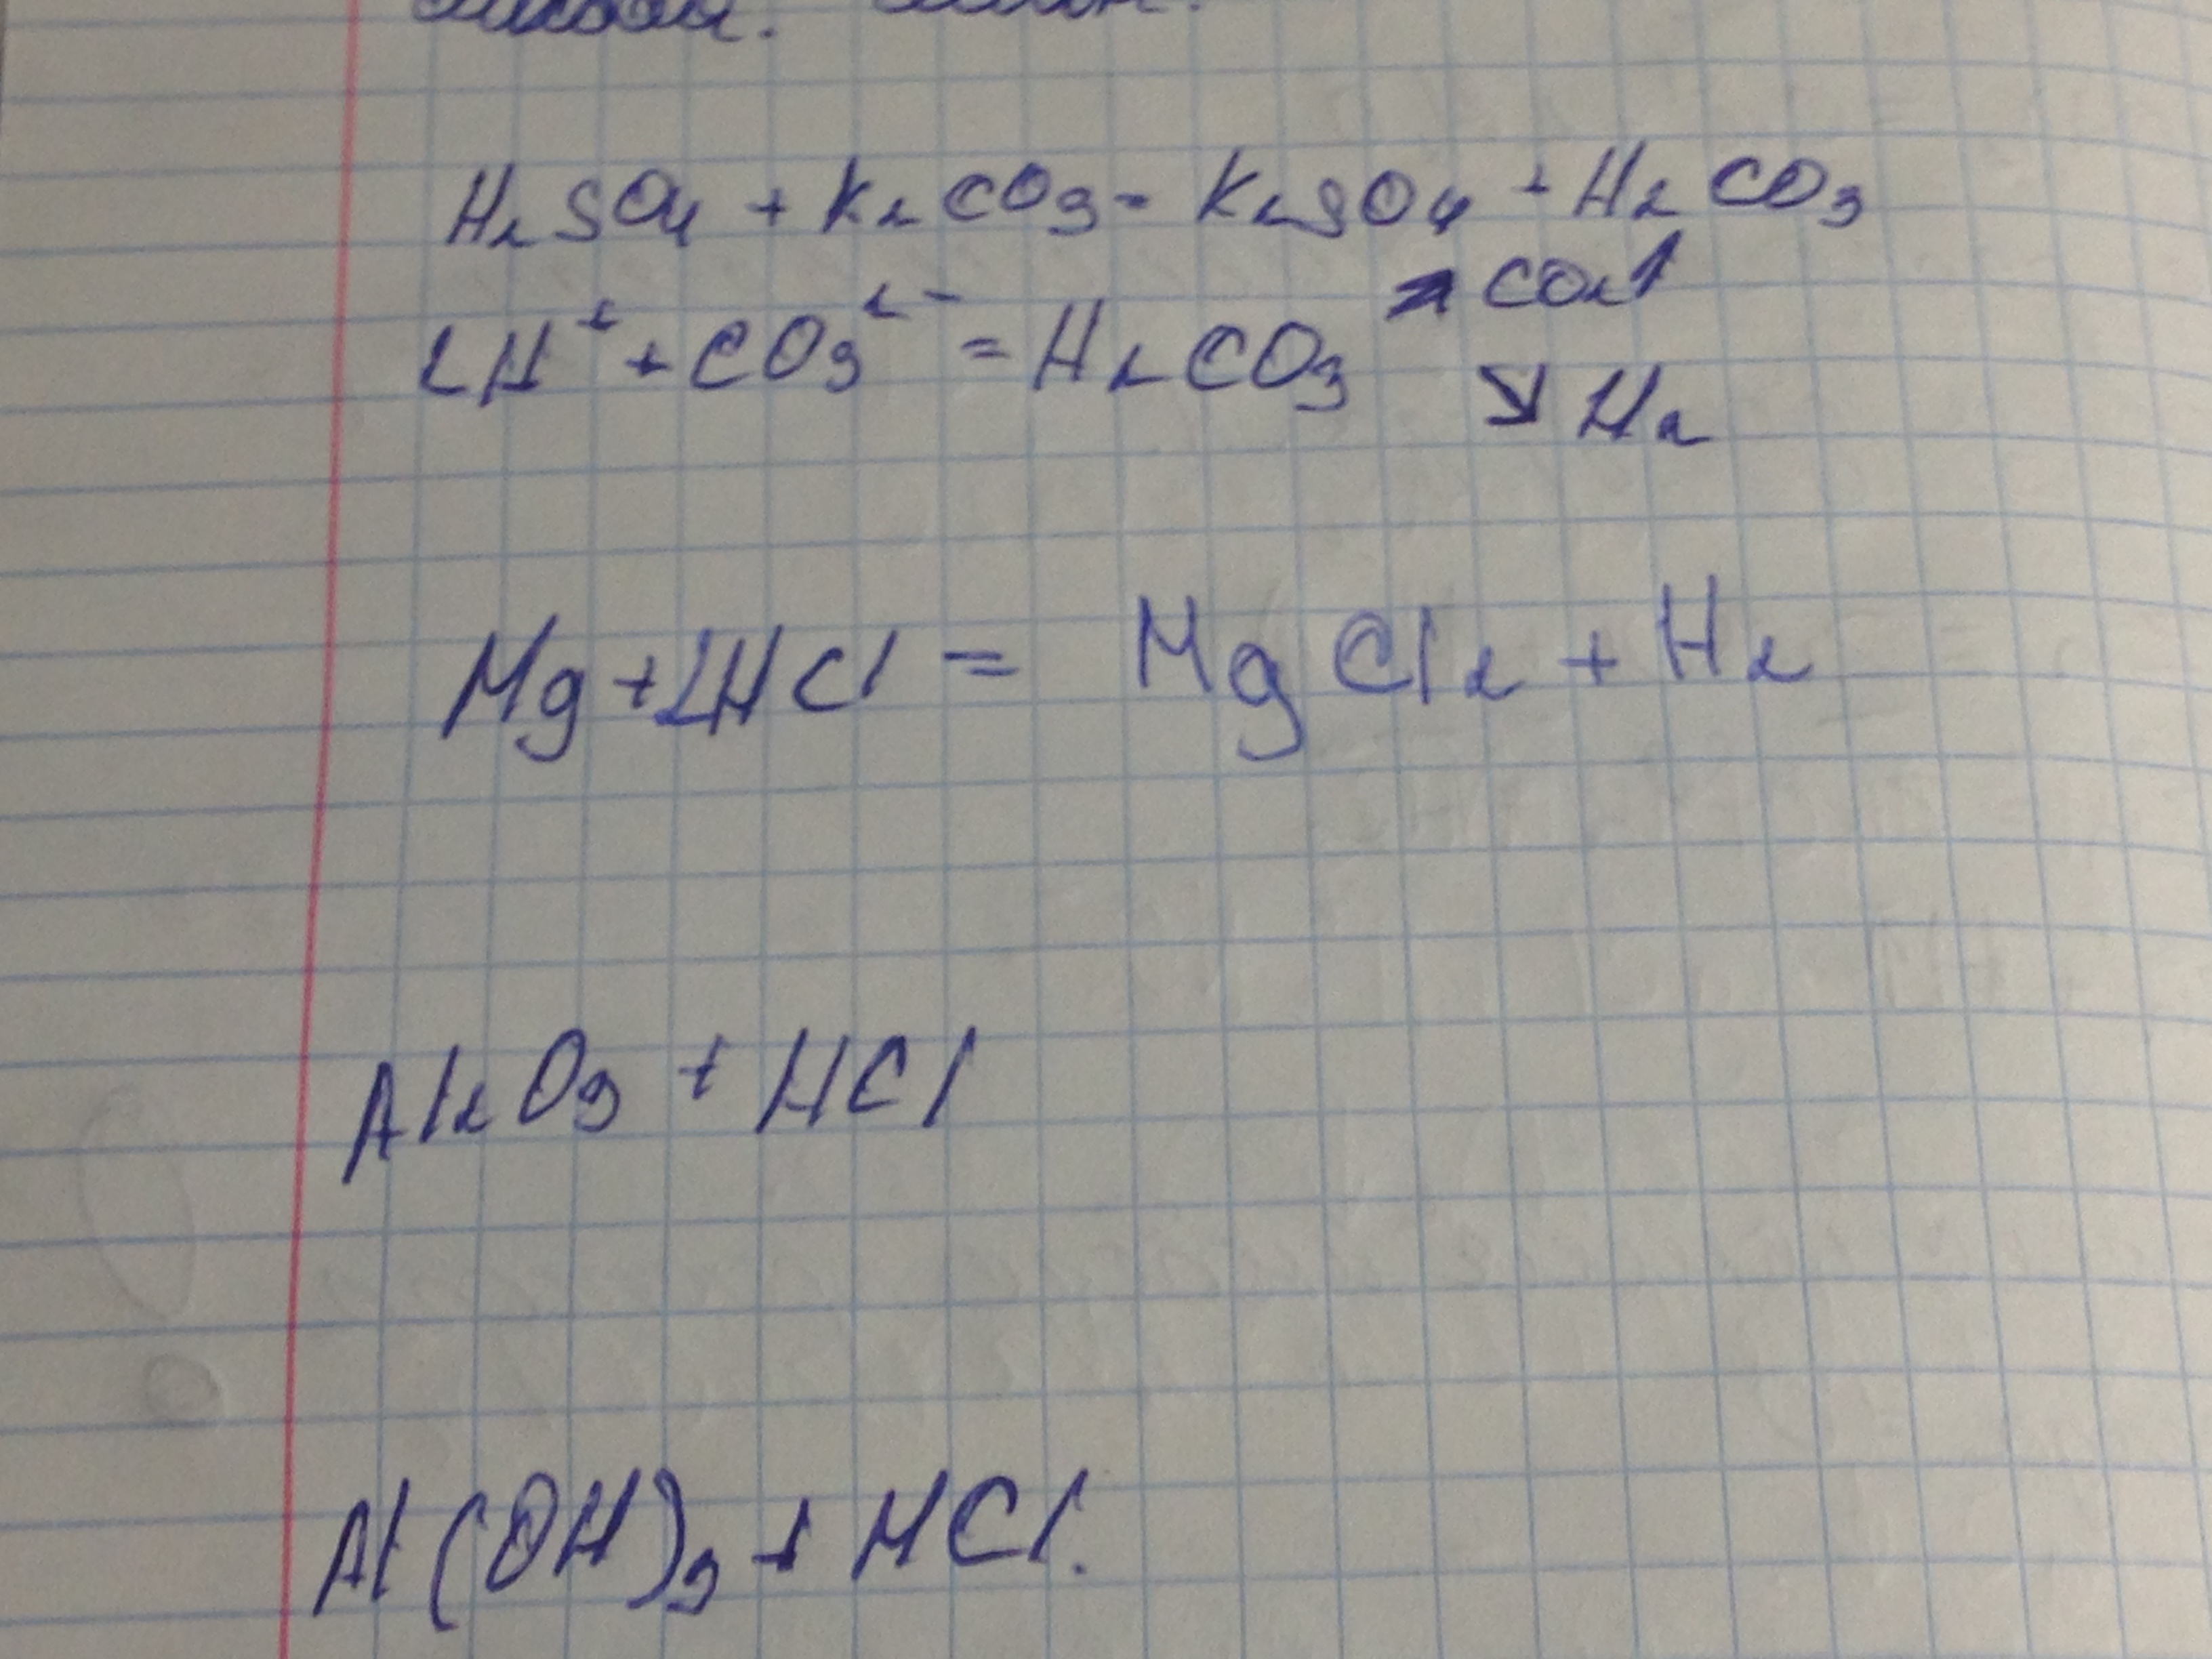 H₂SO₄ + K₂CO₃ = K₂SO₄ + H₂CO₃
2H⁺ + CO₃²⁻ = H₂CO₃ ↗ CO₂↑
↘ H₂
Mg + HCl = MgCl₂ + H₂
Al₂O₃ + HCl
Al(OH)₃ + HCl.